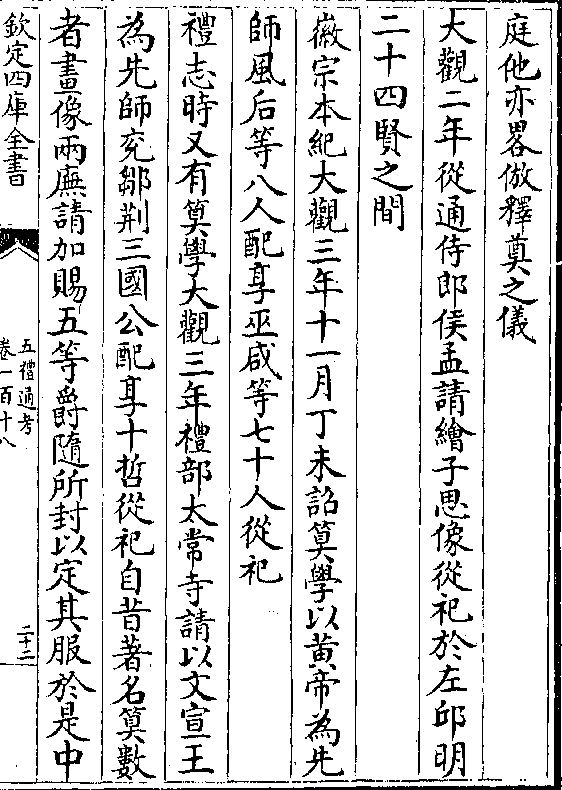 庭他亦畧倣釋奠之儀
大觀二年從通侍郎侯孟請繪子思像從祀於左邱明
二十四賢之間
徽宗本紀大觀三年十一月丁未詔算學以黄帝為先
師風后等八人配享巫咸等七十人從祀
禮志時又有算學大觀三年禮部太常寺請以文宣王
為先師兖鄒荆三國公配享十哲從祀自昔著名算數
者畫像兩廡請加賜五等爵隨所封以定其服於是中
欽定四庫全書
五禮通考
卷一百十八
二十二